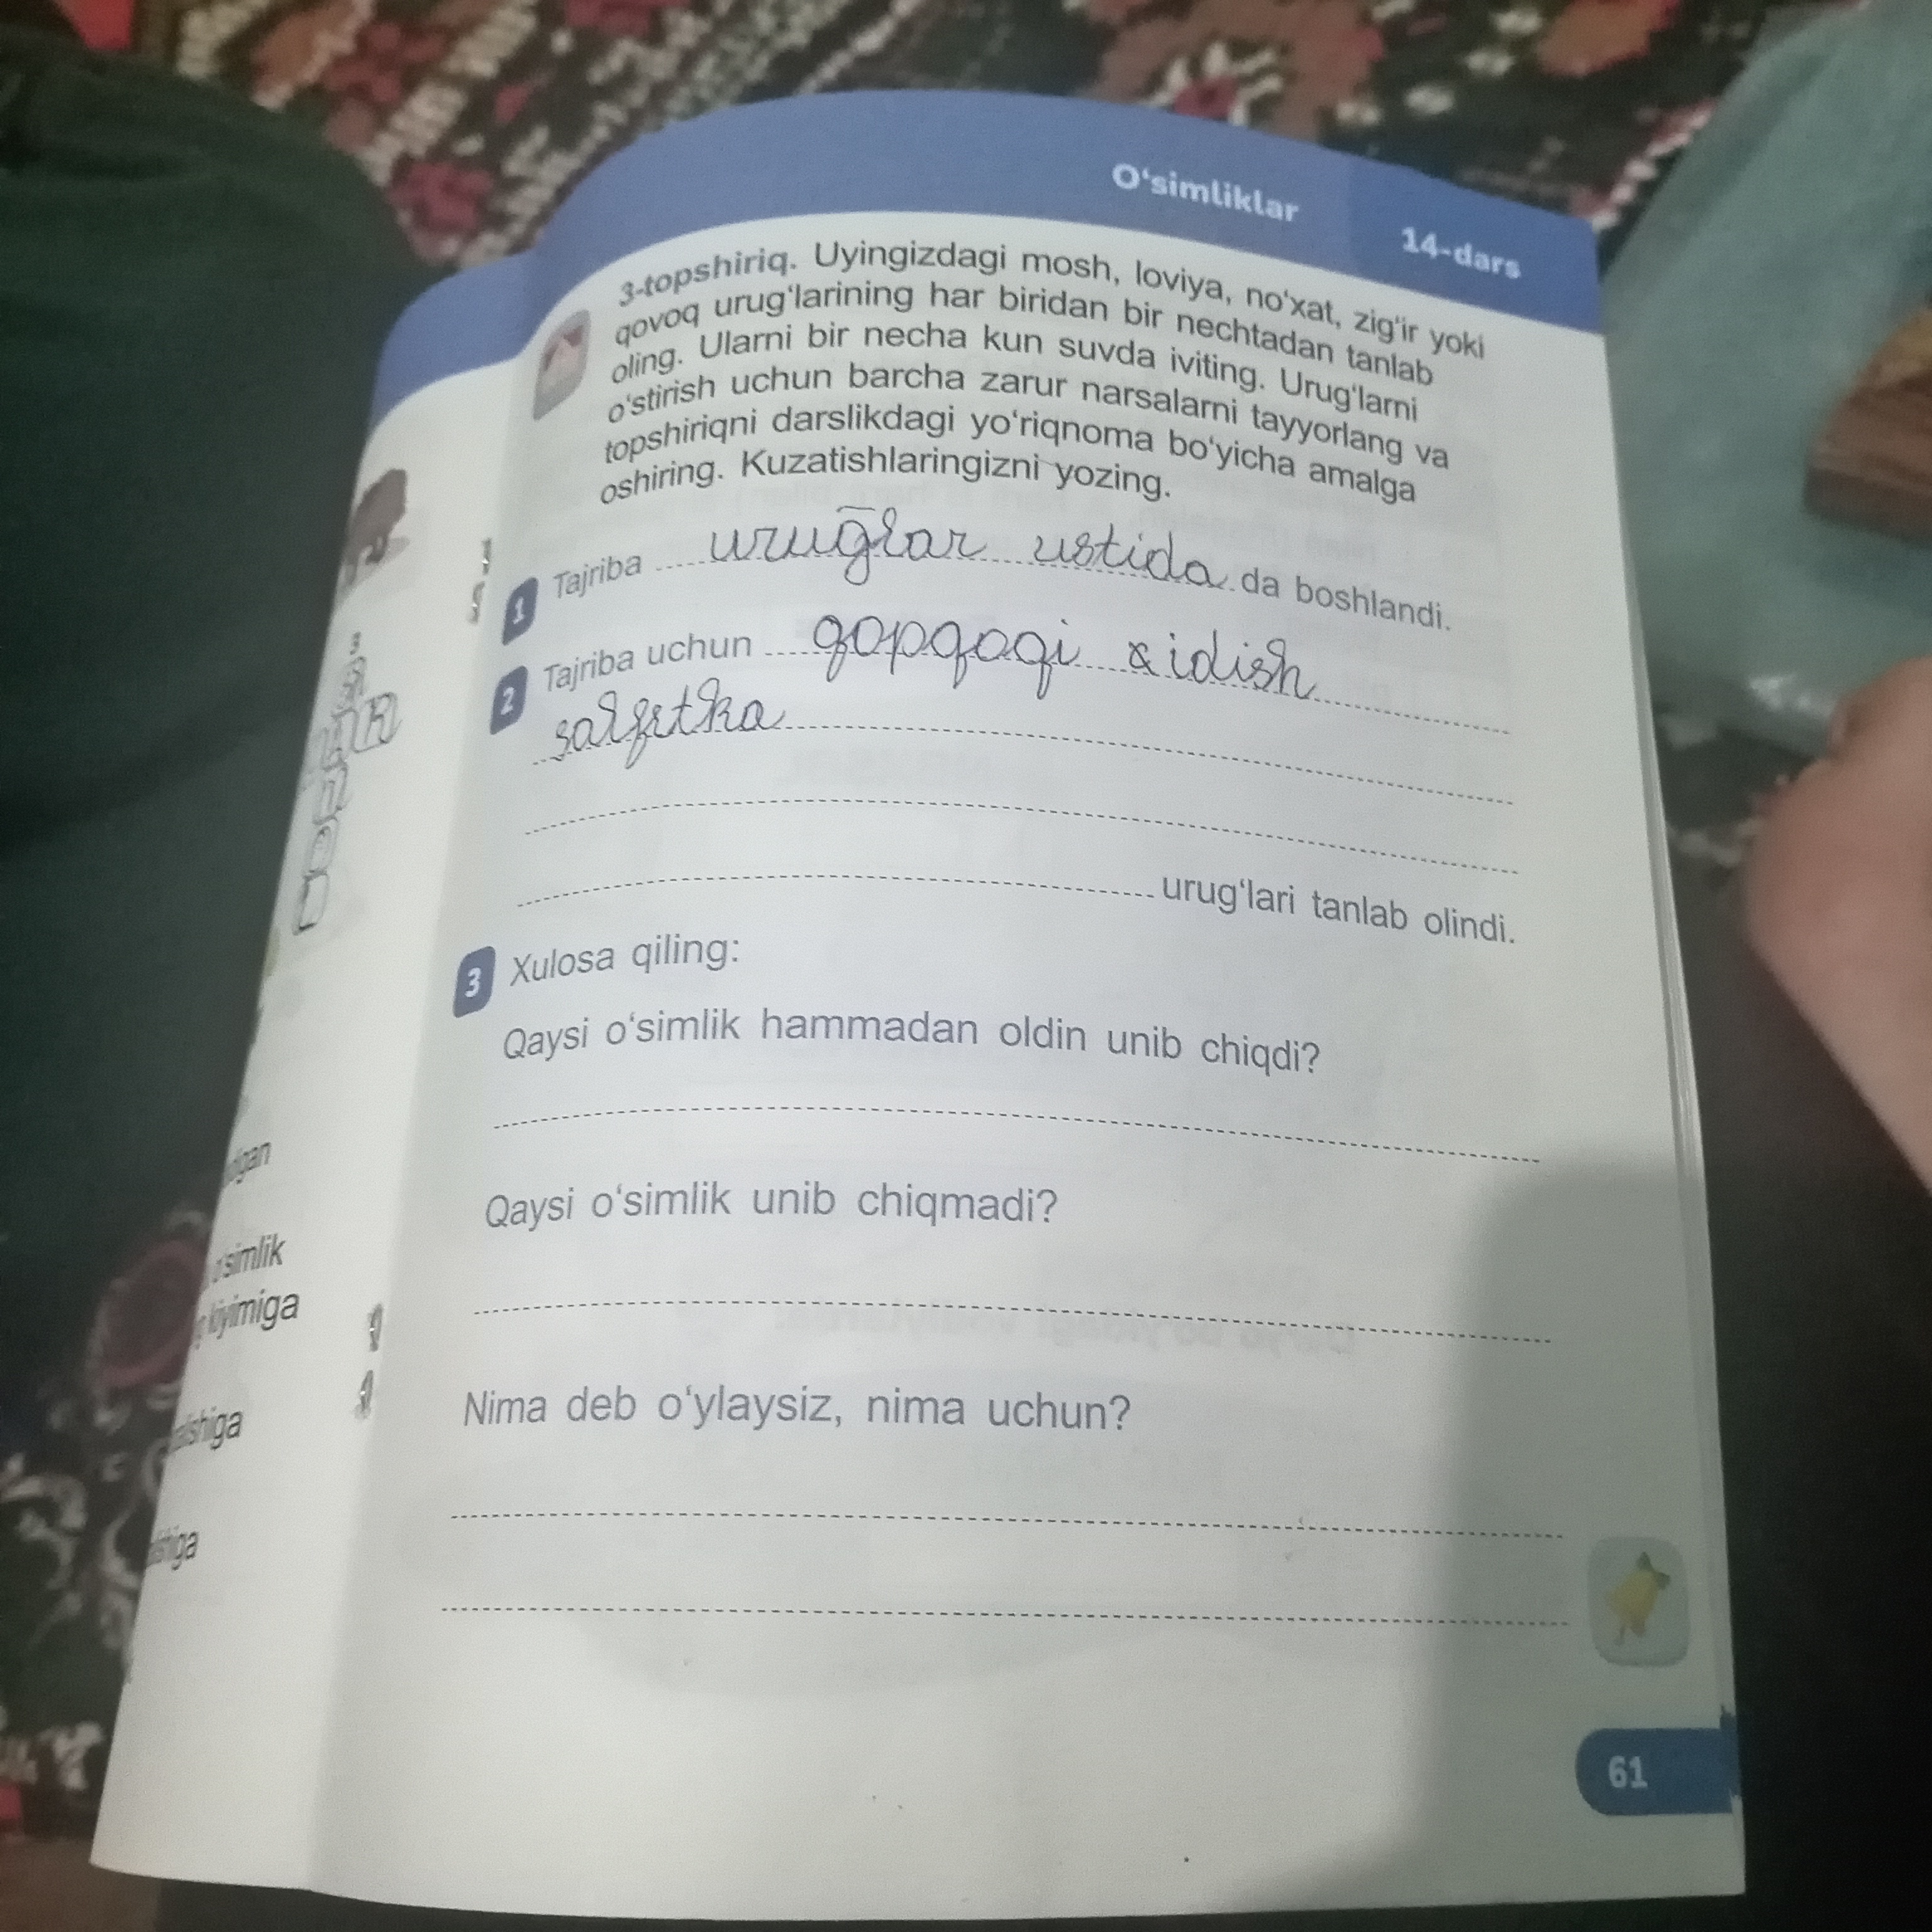 O‘simliklar
14-dars
3-topshiriq. Uyingizdagi mosh, loviya, no‘xat, zig‘ir yoki
qovoq urug‘larining har biridan bir nechtadan tanlab
oling. Ularni bir necha kun suvda iviting. Urug‘larni
o‘stirish uchun barcha zarur narsalarni tayyorlang va
topshiriqni darslikdagi yo‘riqnoma bo‘yicha amalga
oshiring. Kuzatishlaringizni yozing.
1 Tajriba urug̅lar ustida da boshlandi.
2 Tajriba uchun qopqoqi idish
salfetka
urug‘lari tanlab olindi.
3 Xulosa qiling:
Qaysi o‘simlik hammadan oldin unib chiqdi?
Qaysi o‘simlik unib chiqmadi?
Nima deb o‘ylaysiz, nima uchun?
61
o‘simlik